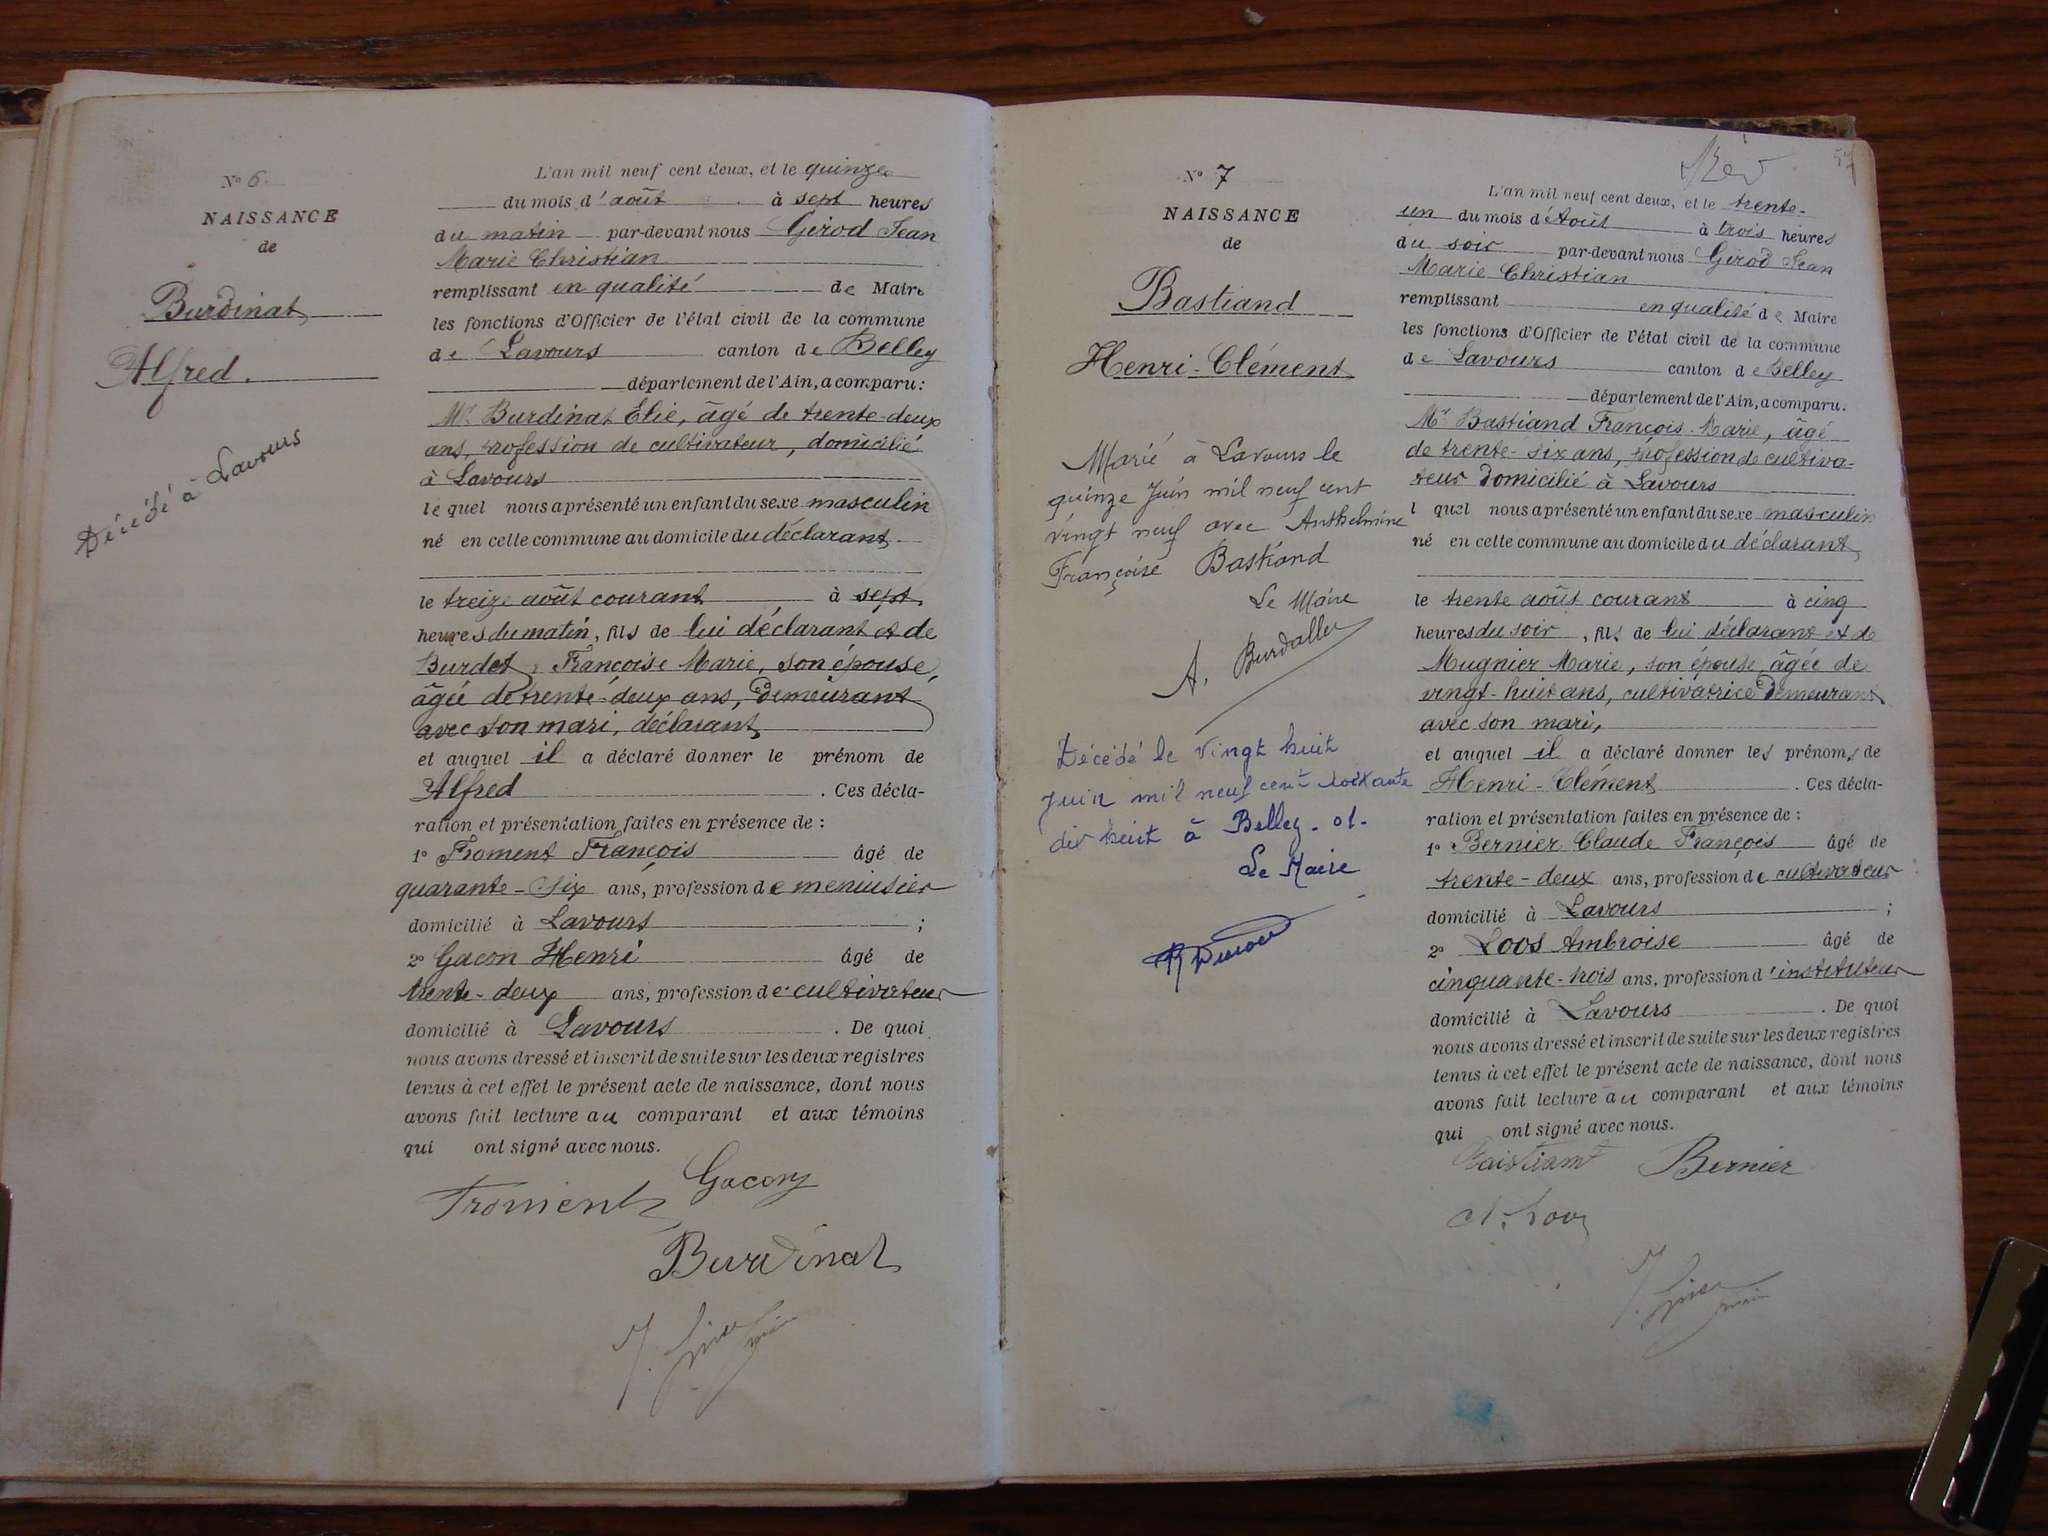 Nº 6.
NAISSANCE
de
Burdinat
Alfred.
Décédé à Lavours
L'an mil neuf cent deux, et le quinze
du mois d'août à sept heures
du matin par-devant nous Girod Jean
Marie Christian
remplissant en qualité de Maire
les fonctions d'Officier de l'état civil de la commune
de Lavours canton de Belley
département de l'Ain, a comparu:
Mr. Burdinat Élie, âgé de trente-deux
ans, profession de cultivateur, domicilié
à Lavours
lequel nous a présenté un enfant du sexe masculin
né en cette commune au domicile du déclarant
le treize août courant à sept
heures du matin, fils de lui déclarant et de
Burdet, Françoise Marie, son épouse,
âgée de trente-deux ans, demeurant
avec son mari, déclarant
et auquel il a déclaré donner le prénom de
Alfred. Ces décla-
ration et présentation faites en présence de :
1º Froment François âgé de
quarante-six ans, profession de menuisier
domicilié à Lavours ;
2º Gacon Henri âgé de
trente-deux ans, profession de cultivateur
domicilié à Lavours. De quoi
nous avons dressé et inscrit de suite sur les deux registres
tenus à cet effet le présent acte de naissance, dont nous
avons fait lecture au comparant et aux témoins
qui ont signé avec nous.
Froment Gacon
Burdinat
Nº 7
NAISSANCE
de
Bastiand
Henri-Clément
Marié à Lavours le
quinze Juin mil neuf cent
vingt neuf avec Anthelmine
Françoise Bastiand
Le Maire
A. Burdallet
Décédé le vingt huit
Juin mil neuf cent soixante
dix huit à Belley - 01 -
Le Maire
57
L'an mil neuf cent deux, et le trente-
un du mois d'Août à trois heures
du soir par-devant nous Girod Jean
Marie Christian
remplissant en qualité de Maire
les fonctions d'Officier de l'état civil de la commune
de Lavours canton de Belley
département de l'Ain, a comparu.
Mr Bastiand François-Marie, âgé
de trente-six ans, profession de cultiva-
teur domicilié à Lavours
l quel nous a présenté un enfant du sexe masculin
né en cette commune au domicile du déclarant
le trente août courant à cinq
heures du soir, fils de lui déclarant et de
Mugnier Marie, son épouse âgée de
vingt-huit ans, cultivatrice demeurant
avec son mari,
et auquel il a déclaré donner les prénoms de
Henri-Clément. Ces décla-
ration et présentation faites en présence de :
1º Bernier Claude François âgé de
trente-deux ans, profession de cultivateur
domicilié à Lavours ;
2º Loos Ambroise âgé de
cinquante-trois ans, profession d'instituteur
domicilié à Lavours. De quoi
nous avons dressé et inscrit de suite sur les deux registres
tenus à cet effet le présent acte de naissance, dont nous
avons fait lecture au comparant et aux témoins
qui ont signé avec nous.
Bastiand Bernier
A. Loos